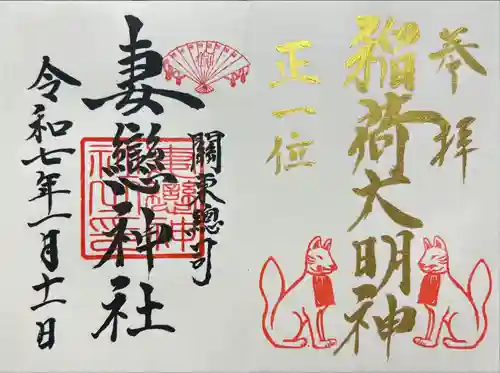 奉拝
稲荷大明神
正一位
關東總司
妻戀神社
令和七年一月十一日